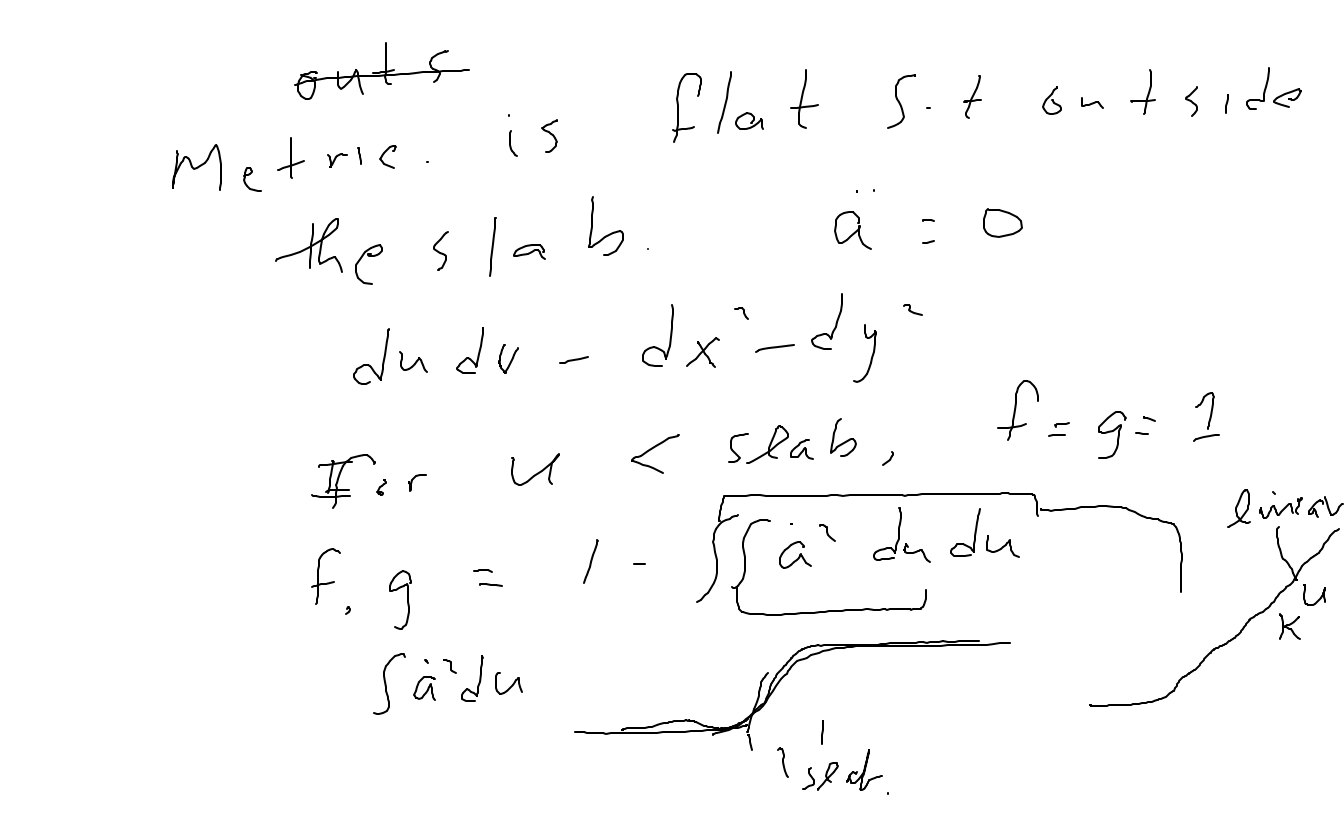 outs
Metric. is flat s.t outside
the slab. ä = 0
du dv - dx² - dy²
For u < slab, f = g = 1
f, g = 1 - ∫∫ ȧ² du du
linear
k u
∫ ȧ² du
slab.